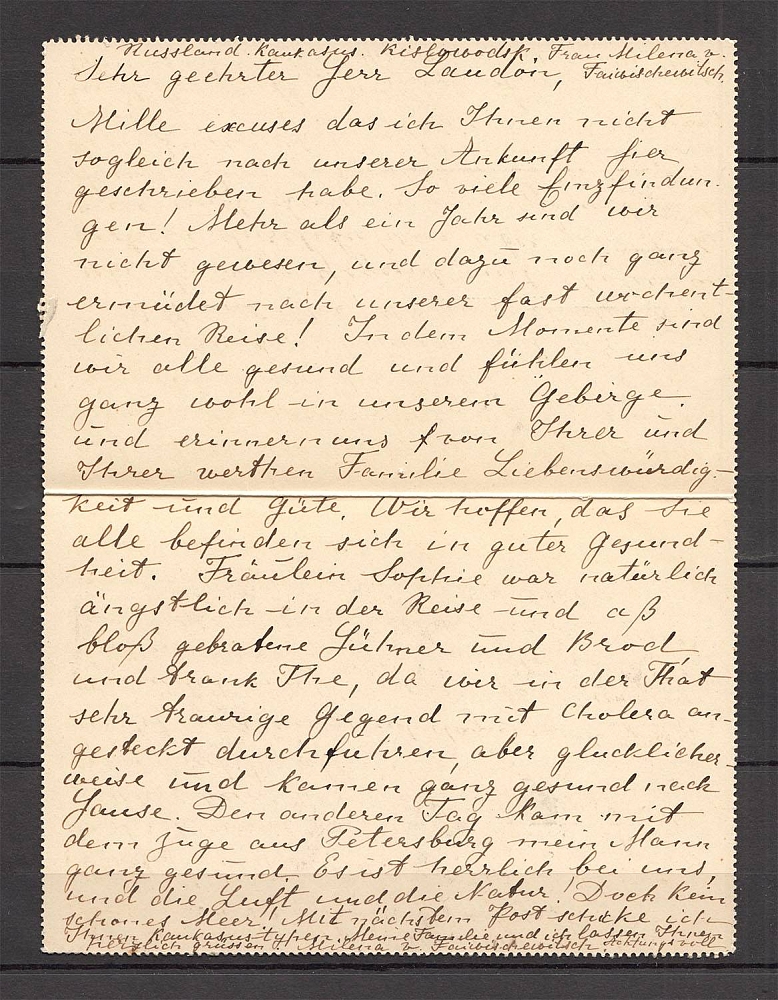 Russland. Kaukasus. Kislowodsk. Frau Milena v.
Sehr geehrter Herr Laudon, Faiwischewitsch.
Mille excuses das ich Ihnen nicht
sogleich nach unserer Ankunft hier
geschrieben habe. So viele Empfindun-
gen! Mehr als ein Jahr sind wir
nicht gewesen, und dazu noch ganz
ermüdet nach unserer fast wochent-
lichen Reise! In dem Momente sind
wir alle gesund und fühlen uns
ganz wohl in unserem Gebirge.
und erinnern uns von Ihrer und
Ihrer werthen Familie Liebenswürdig-
keit und Güte. Wir hoffen, das Sie
alle befinden sich in guter Gesund-
heit. Fräulein Sophie war natürlich
ängstlich in der Reise und aß
bloß gebratene Hühner und Brod
und trank The, da wir in der That
sehr traurige Gegend mit Cholera an-
gesteckt durchfuhren, aber glucklicher-
weise und kamen ganz gesund nach
Hause. Den anderen Tag kam mit
dem Zuge aus Petersburg mein Mann
ganz gesund. Es ist herrlich bei uns,
und die Luft und die Natur! Doch kein
schönes Meer! Mit nächstem Post schicke ich
Ihnen Kaukasus-typen. Meine Familie und ich lassen Ihnen
herzlich grüssen Milena v. Faiwischewitsch Achtungsvoll